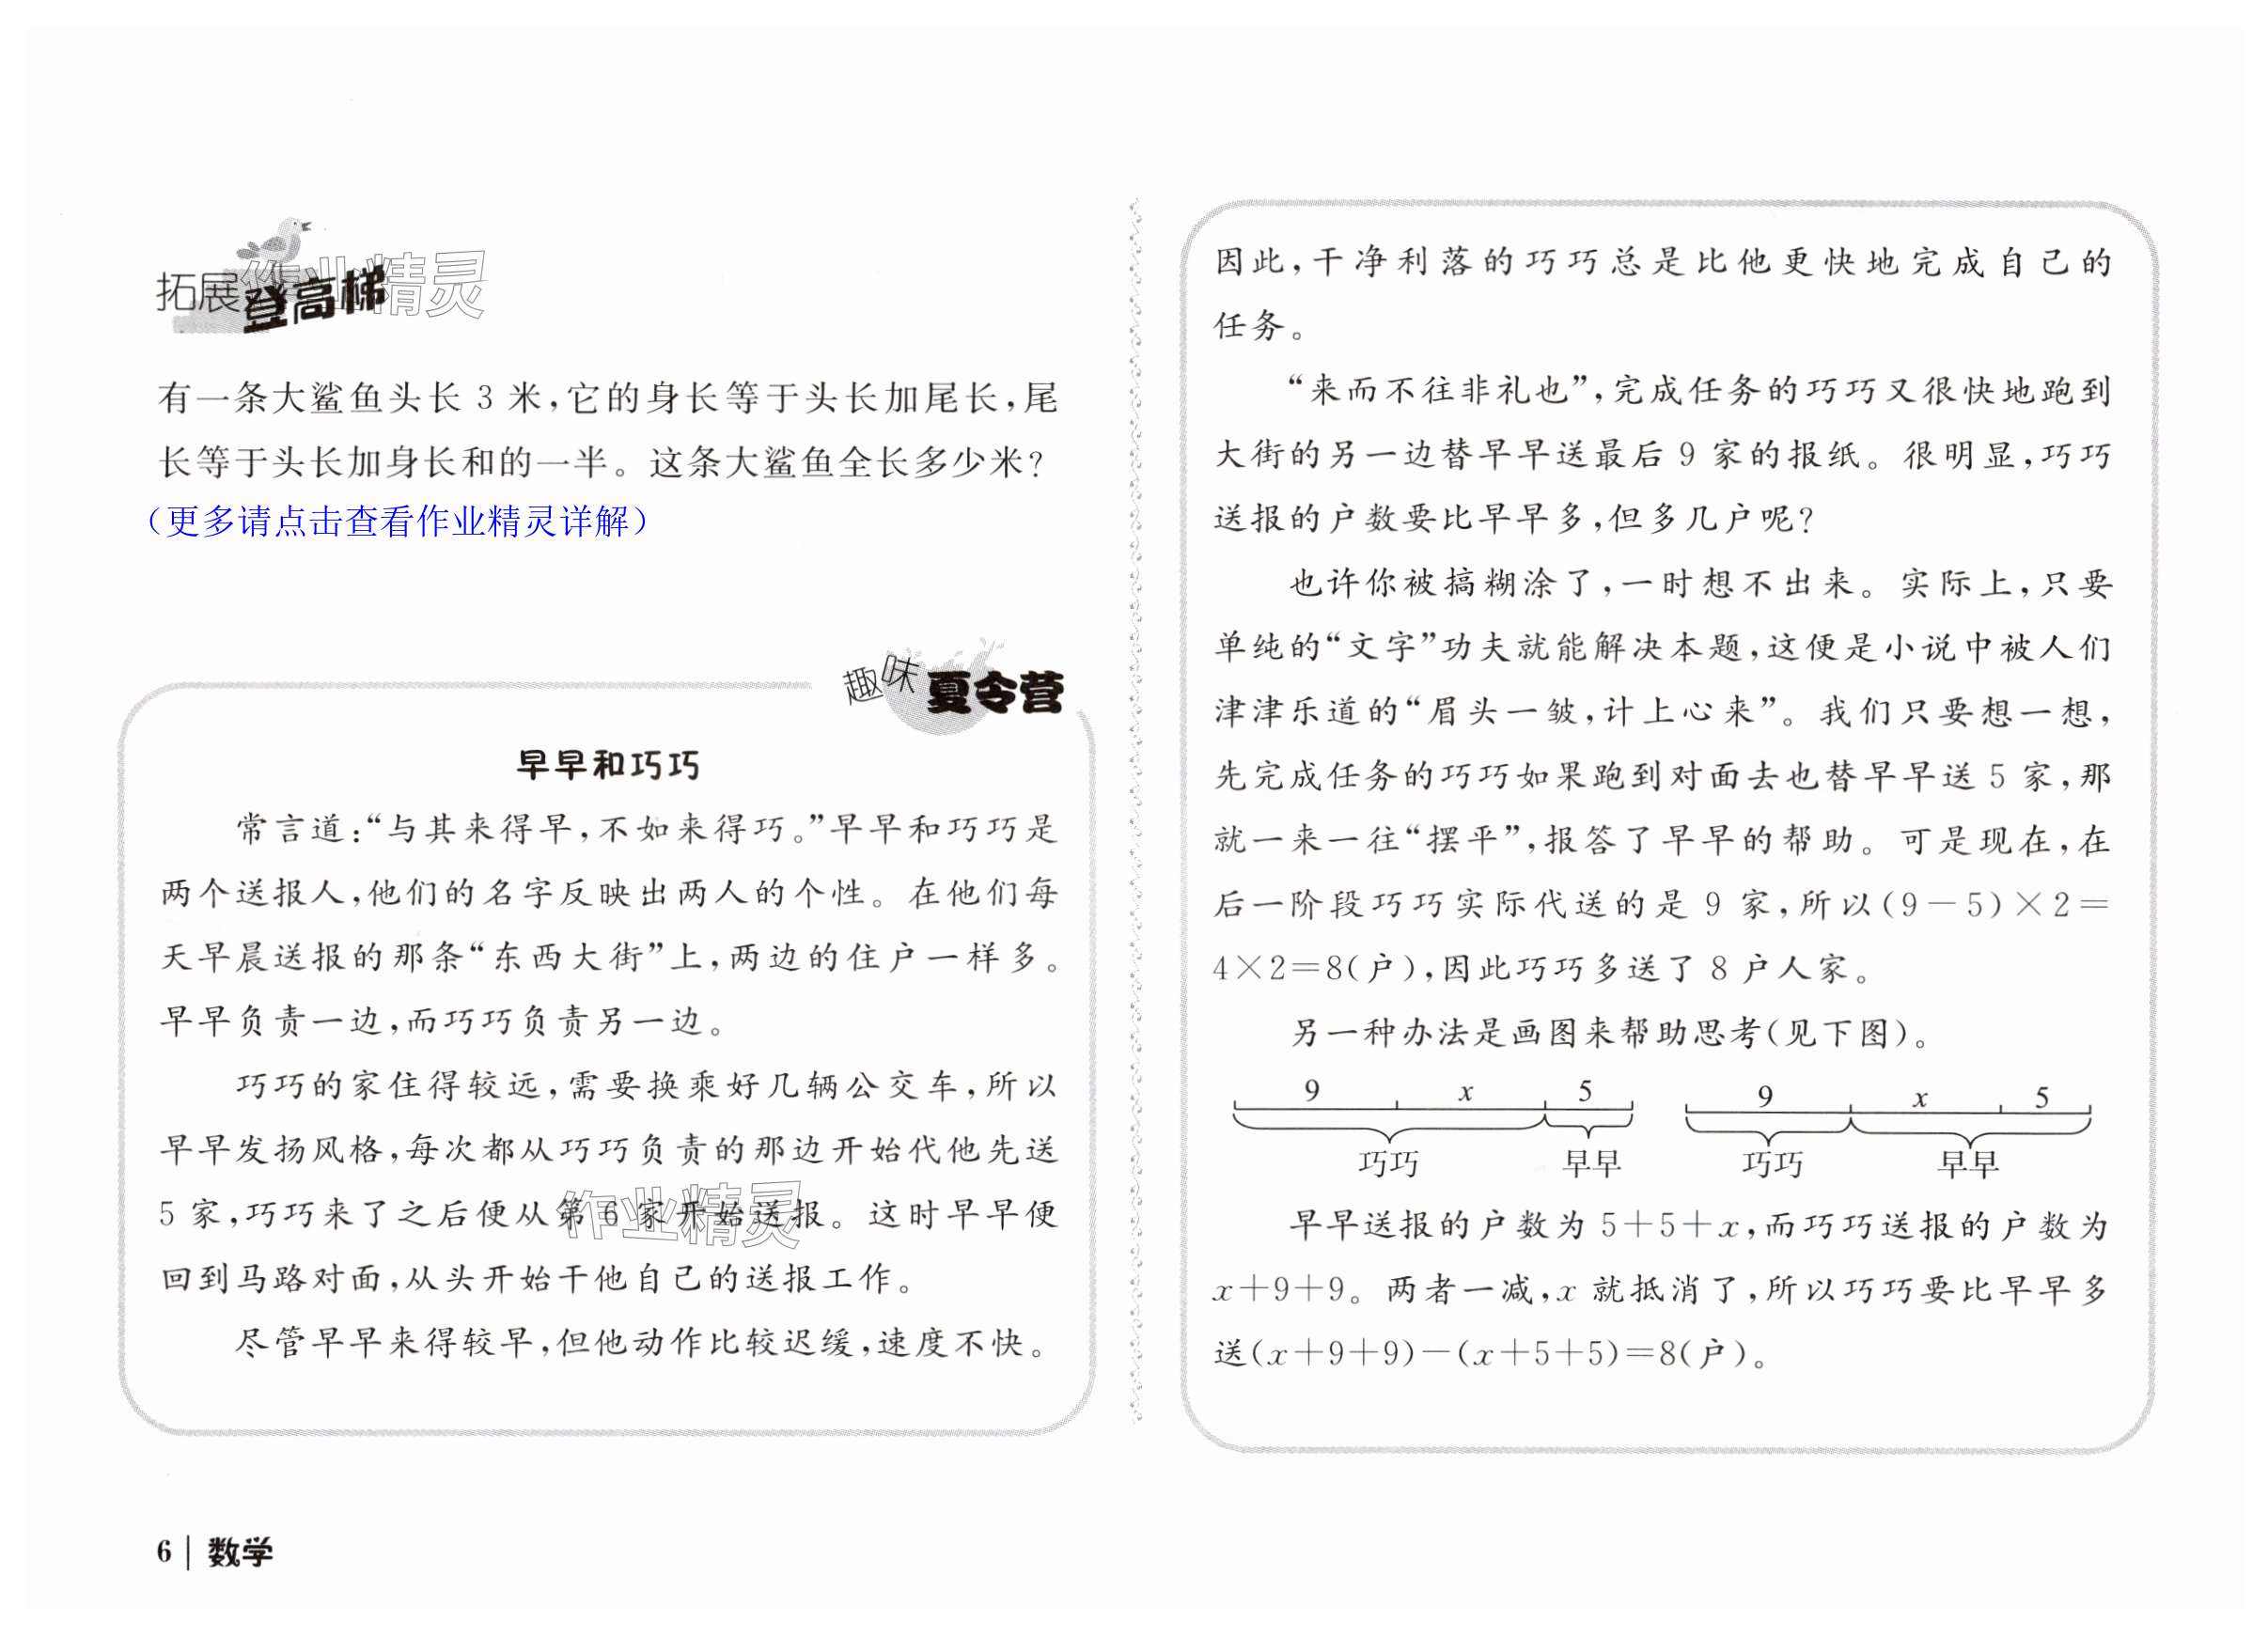 拓展登高梯
作业精灵
有一条大鲨鱼头长 3 米,它的身长等于头长加尾长,尾
长等于头长加身长和的一半。这条大鲨鱼全长多少米?
(更多请点击查看作业精灵详解)
趣味夏令营
早早和巧巧
常言道:“与其来得早,不如来得巧。”早早和巧巧是
两个送报人,他们的名字反映出两人的个性。在他们每
天早晨送报的那条“东西大街”上,两边的住户一样多。
早早负责一边,而巧巧负责另一边。
巧巧的家住得较远,需要换乘好几辆公交车,所以
早早发扬风格,每次都从巧巧负责的那边开始代他先送
5 家,巧巧来了之后便从第 6 家开始送报。这时早早便
作业精灵
回到马路对面,从头开始干他自己的送报工作。
尽管早早来得较早,但他动作比较迟缓,速度不快。
因此,干净利落的巧巧总是比他更快地完成自己的
任务。
“来而不往非礼也”,完成任务的巧巧又很快地跑到
大街的另一边替早早送最后 9 家的报纸。很明显,巧巧
送报的户数要比早早多,但多几户呢?
也许你被搞糊涂了,一时想不出来。实际上,只要
单纯的“文字”功夫就能解决本题,这便是小说中被人们
津津乐道的“眉头一皱,计上心来”。我们只要想一想,
先完成任务的巧巧如果跑到对面去也替早早送 5 家,那
就一来一往“摆平”,报答了早早的帮助。可是现在,在
后一阶段巧巧实际代送的是 9 家,所以(9－5)×2＝
4×2＝8(户),因此巧巧多送了 8 户人家。
另一种办法是画图来帮助思考(见下图)。
9 x 5 9 x 5
巧巧 早早 巧巧 早早
早早送报的户数为 5＋5＋x,而巧巧送报的户数为
x＋9＋9。两者一减,x 就抵消了,所以巧巧要比早早多
送(x＋9＋9)－(x＋5＋5)＝8(户)。
6 | 数学